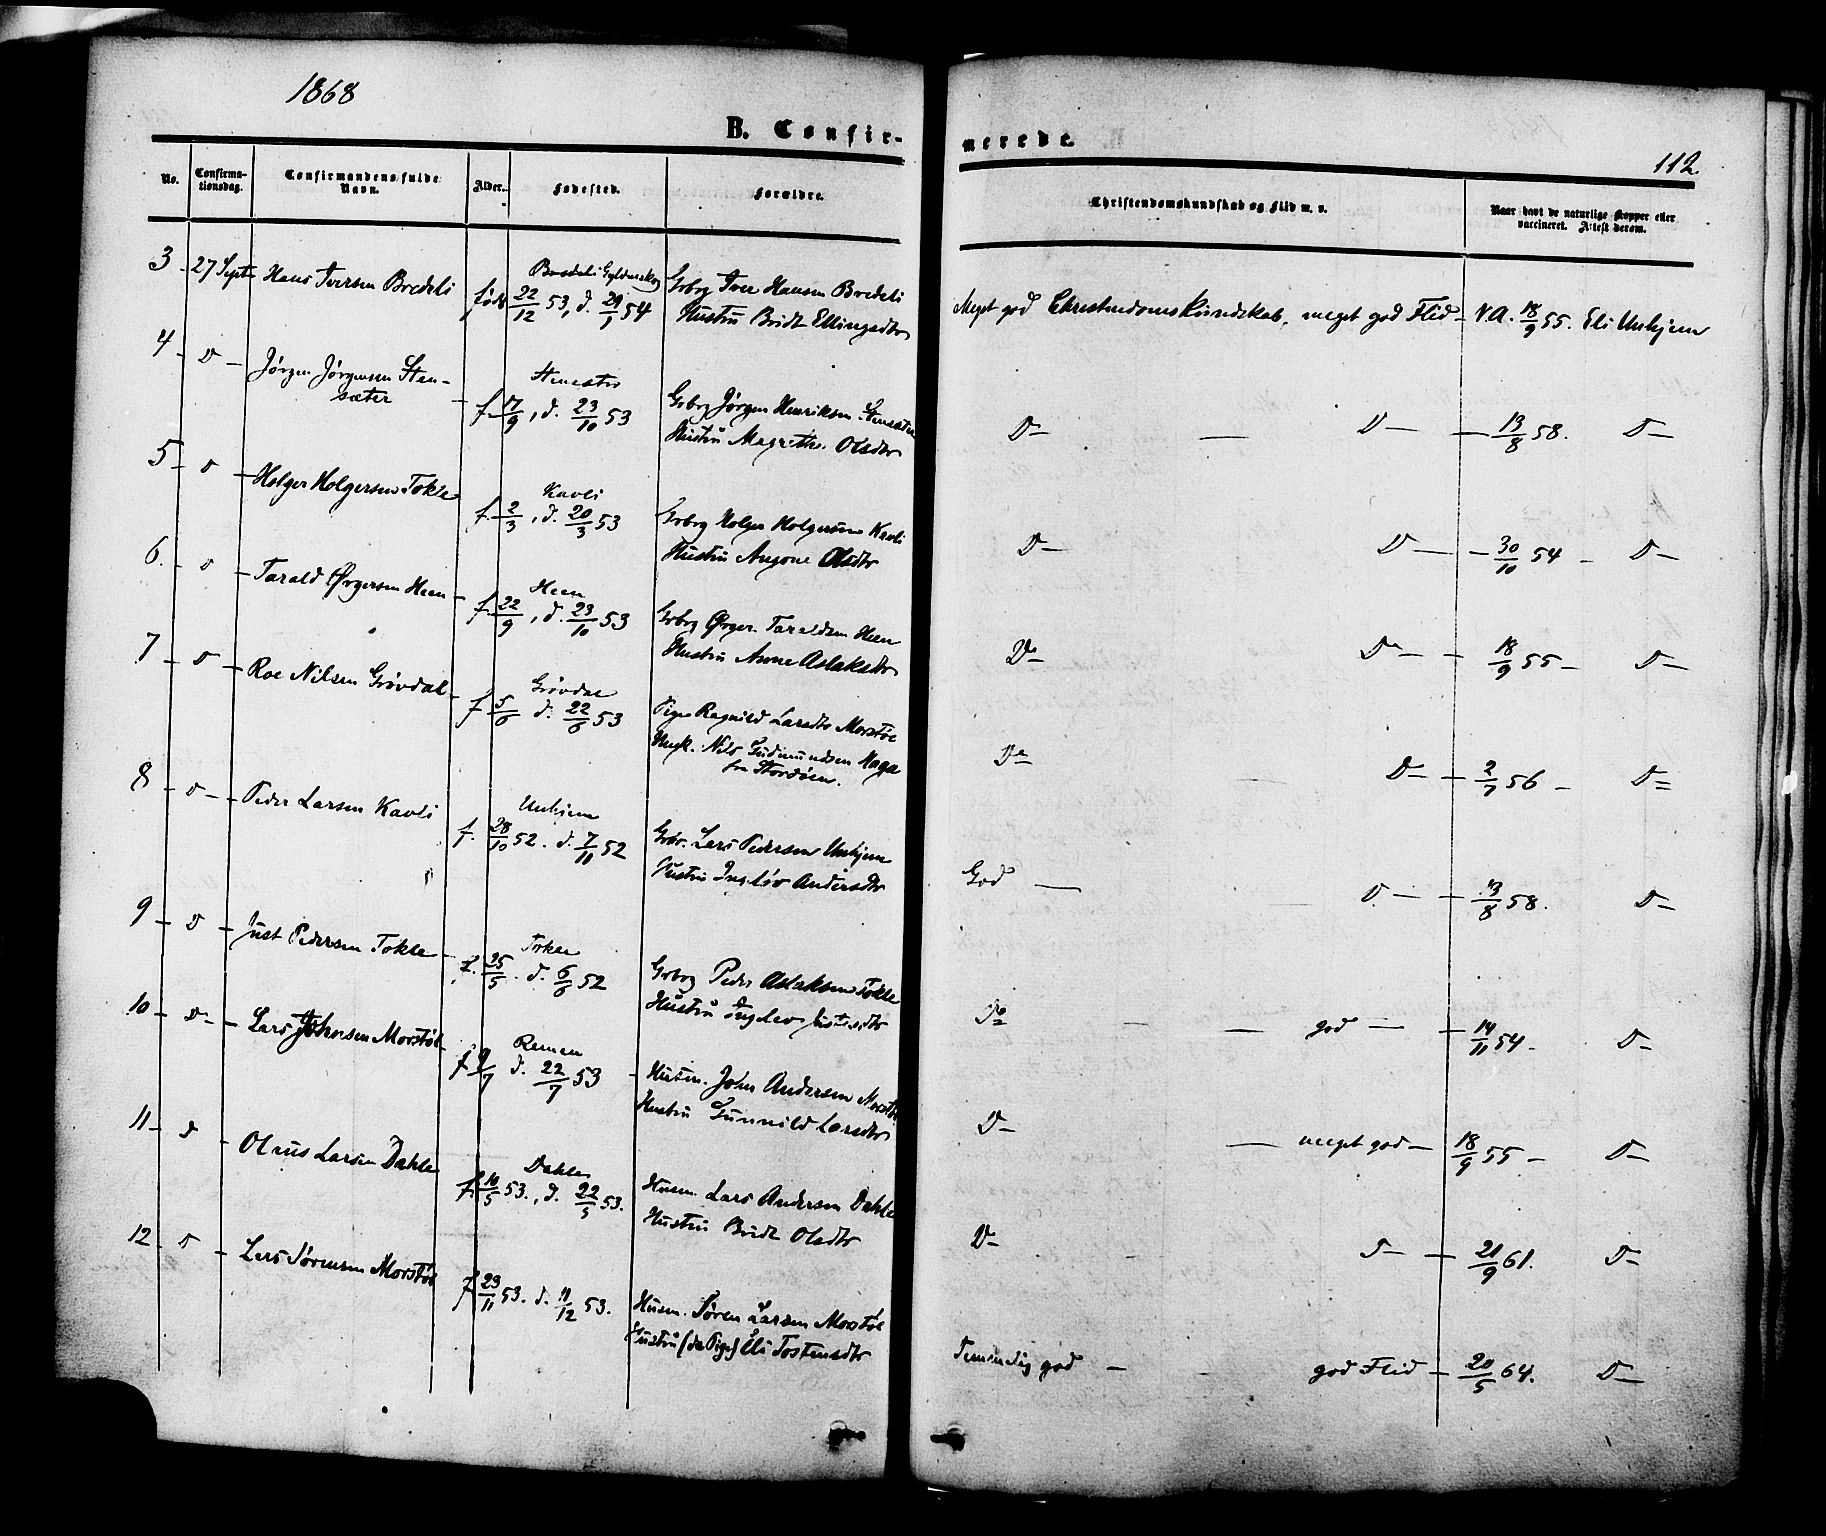 1868
B. Confir-
merede.
112.
No.
Confirma-
tionsdag.
Confirmandens fulde
Navn.
Alder.
Fødested.
Forældre.
Christendomskundskab og Flid m. v.
Naar havt de naturlige Kopper eller
vaccineret. Attest derom.
3 - 27 Sept - Hans Iversen Bredeli
Bredeli
født 22/12 53, d. 29/1 54
Gbrg Iver Hansen Bredeli
Hustru Bridt Ellingsdtr
Meget god Christendomskundskab, meget god Flid - V.A. 18/9 55. Eli Unhjem
4 - D - Jørgen Jørgensen Sten-
sæter
f. 17/9, d. 23/10 53
Gbrg Jørgen Henriksen Stensæter
Hustru Magrethe Olsdtr
D - — D - — 13/8 58. D -
5 - D - Holger Holgersen Tokle
Kavli
f. 2/3, d. 20/3 53
Gbrg Holger Holgersen Kavli
Hustru Olsdtr
D - D - - 30/10 54 - D -
6. - D - Tarald Ørgersen Heen -
Heen
f. 22/9, d. 23/10 53
Gbrg Ørger Taraldsen Heen
Hustru Anne Aslaksdtr
Do - Do - - 18/9 55 - D -
7 - D - Roe Nilsen Grøvdal -
Grøvdal
f. 5/6 d. 22/6 53
Pige Ragnild Larsdtr Morstøl
Ungk. Nils Gudmundsen Haga
fra Stordøen.
Do D - - 2/7 56 - D -
8 - D - Peder Larsen Kavli
Unhjem
f. 28/10 52. d. 7/11 52
Gbr. Lars Pedersen Unhjem
Hustru Ingeløv Andersdtr
God — D. - - 13/8 58. D -
9 - D - Just Pedersen Tokle -
Tokle
f. 25/5. d. 6/6 52
Gbrg Peder Aslaksen Tokle
Hustru Ingeløv Justsdtr
Do — — god — - 14/11 54 - D -
10 - D - Lars Johnsen Morstøl -
Remen
f. 9/7 d. 22/7 53 -
Husm. John Andersen Morstøl
Hustru Gunnild Larsdtr
D - — meget god - 18/9 55 - D -
11 - D - Olaus Larsen Dahle
Dahle
f. 10/5 53., d. 22/5 53.
Husm. Lars Andersen Dahle
Hustru Bridt Olsdtr
D - - D - - 21/9 61. D -
12 - D - Lars Sørensen Morstøl
f. 23/11 53. d. 11/12 53.
Husm. Søren Larsen Morstøl
Hustru (da Pige) Eli Tostensdtr
Temmelig god - god Flid - 20/5 64. D -